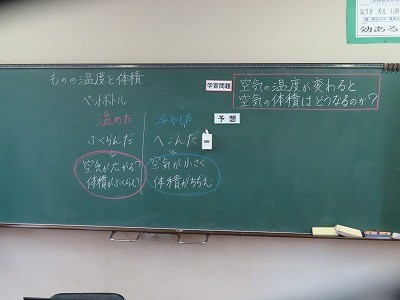 ものの温度と体積
ペットボトル
温めた
ふくらんだ
空気が広がる?
体積がふくらむ?
冷やした
へこんだ
空気が小さく
体積がちぢむ
学習問題
空気の温度が変わると
空気の体積はどうなるのか?
予想
気づき 考え 行動
効ある